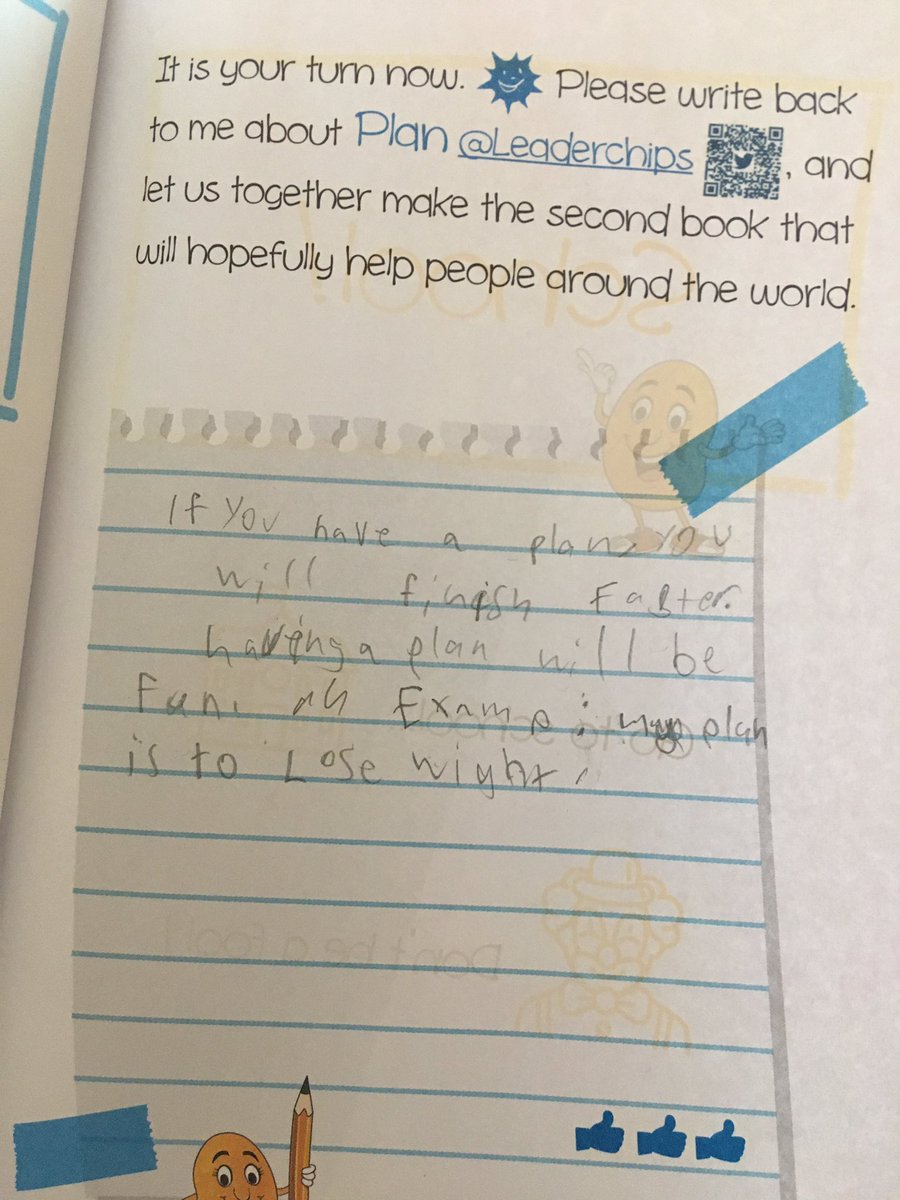 It is your turn now. Please write back
to me about Plan @Leaderchips , and
let us together make the second book that
will hopefully help people around the world.
If you have a plan, you
will finish Faster.
having a plan will be
Fun. an Examp : my plan
is to Lose wight.
School!
Go to school
Don't be a fool!